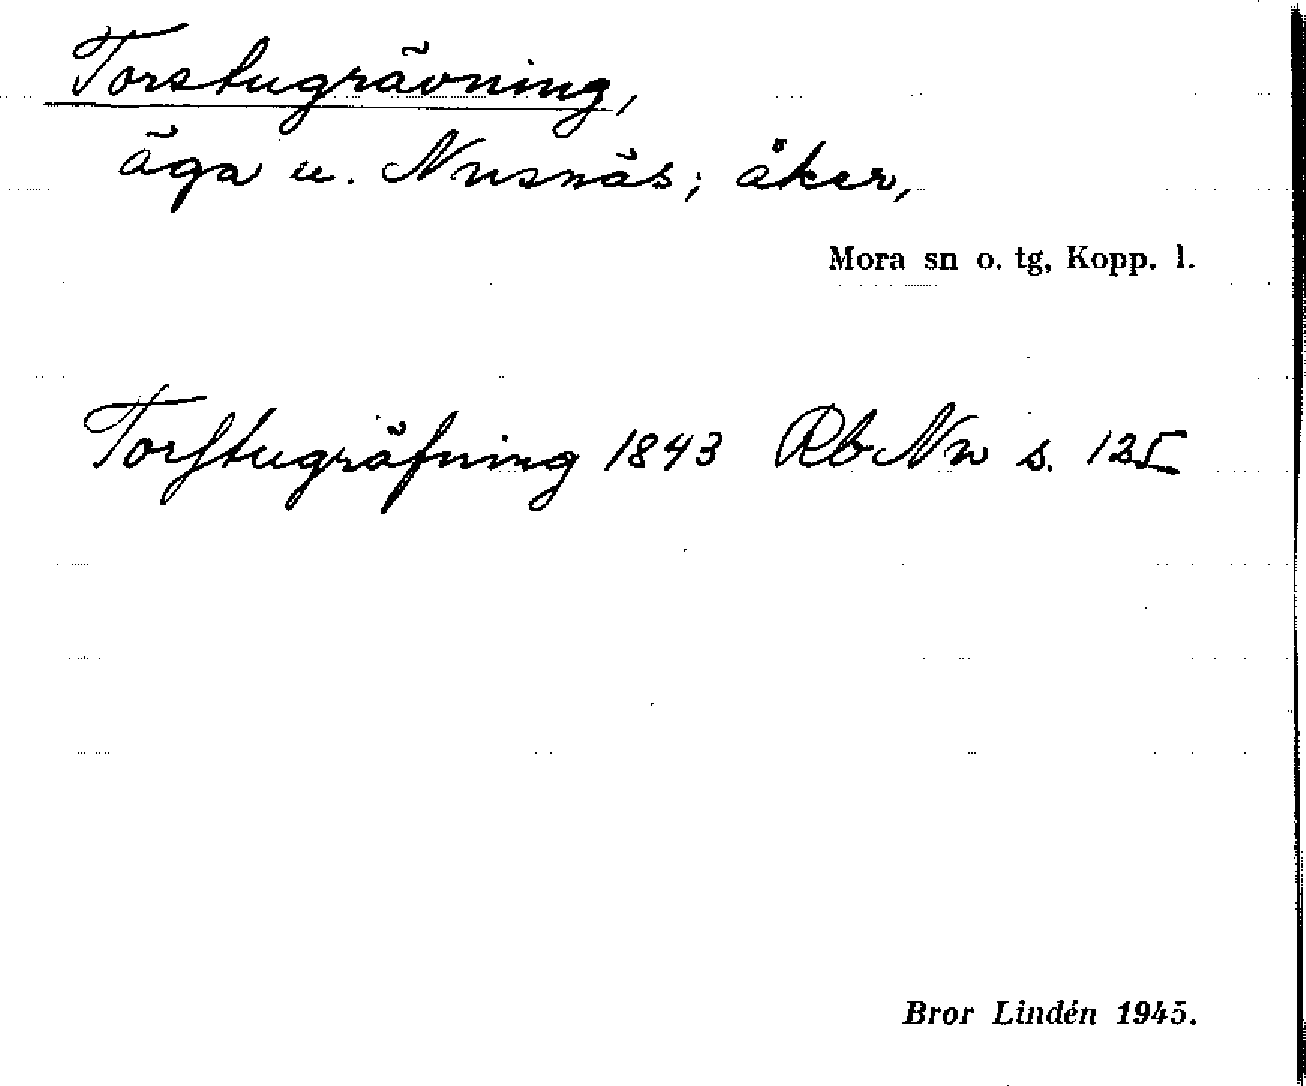 Torstugrävning,
äga u. Nusnäs; åker,
Mora sn o. tg, Kopp. l.
Torstugräfning 1843 Rb Nn s. 125
Bror Lindén 1945.